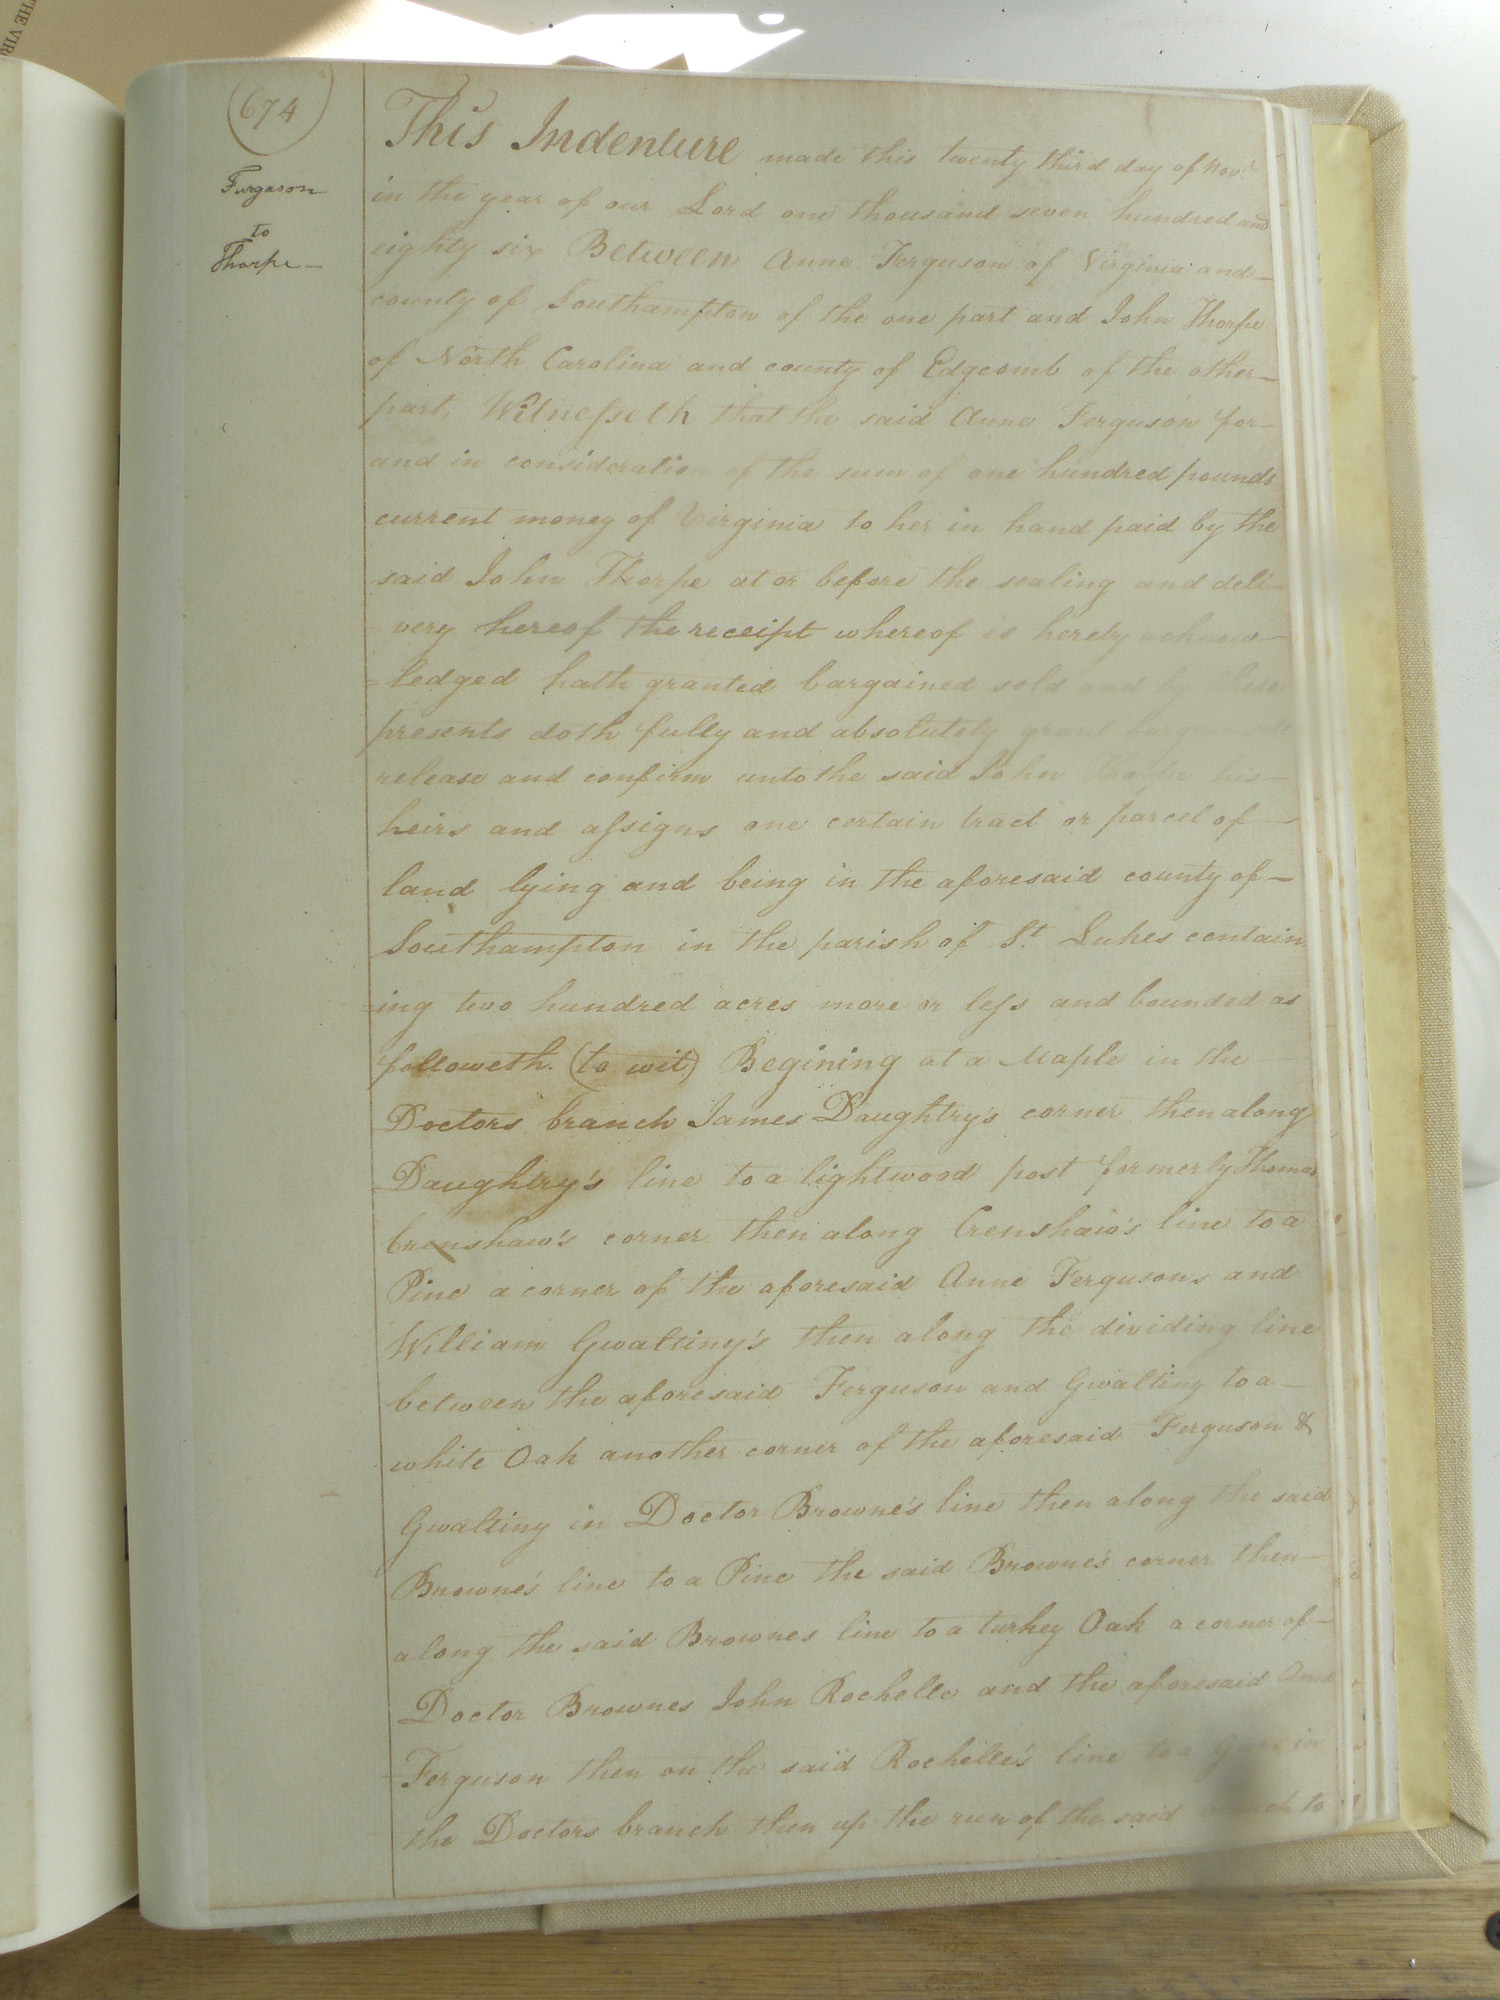 THE VIR
674
Furgason
to
Thorpe
This Indenture made this twenty third day of Novr
in the year of our Lord one thousand seven hundred and
eighty six Between Anne Ferguson of Virginia and
county of Southampton of the one part and John Thorpe
of North Carolina and county of Edgcomb of the other
part, Witnesseth that the said Anne Ferguson for
and in consideration of the sum of one hundred pounds
current money of Virginia to her in hand paid by the
said John Thorpe at or before the sealing and deli-
very hereof the receipt whereof is hereby acknow-
=ledged hath granted bargained sold and by these
presents doth fully and absolutely grant
release and confirm unto the said John Thorpe his
heirs and assigns one certain tract or parcel of
land lying and being in the aforesaid county of
Southampton in the parish of St. Lukes contain
=ing two hundred acres more or less and bounded as
followeth. (to wit) Begining at a Maple in the
Doctors branch James Daughtry's corner then along
Daughtry's line to a lightwood post formerly Thomas
Crenshaw's corner then along Crenshaw's line to a
Pine a corner of the aforesaid Anne Fergusons and
William Gwaltiny's then along the dividing line
between the aforesaid Ferguson and Gwaltiny to a
white Oak another corner of the aforesaid Ferguson &
Gwaltiny in Doctor Browne's line then along the said
Browne's line to a Pine the said Browne's corner then
along the said Brownes line to a turkey Oak a corner of
Doctor Brownes John Rochelle and the aforesaid Anne
Ferguson then on the said Rochelle's line to a Gum in
the Doctors branch then up the run of the said branch to